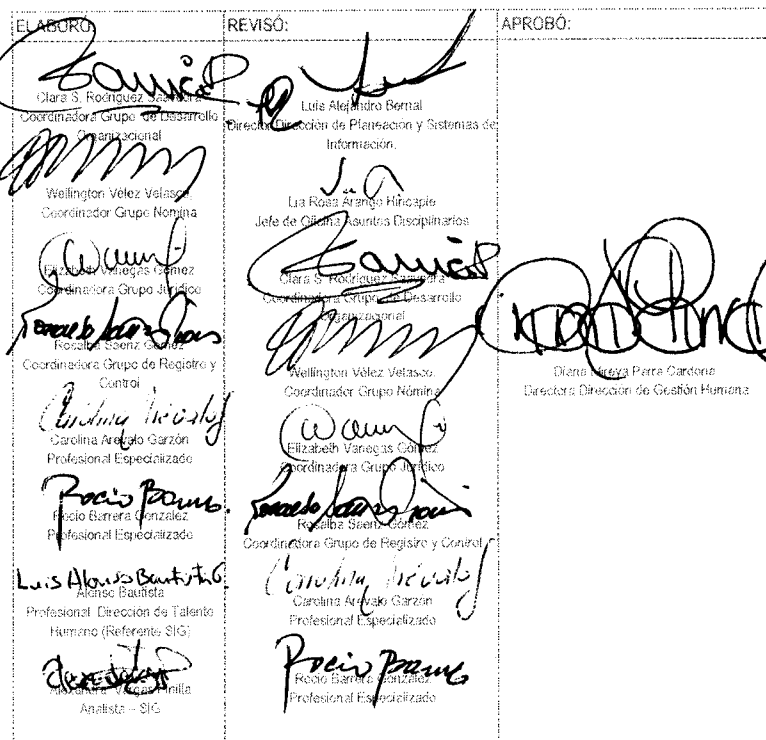 ELABORÓ:
Clara S. Rodríguez Saavedra
Coordinadora Grupo de Desarrollo
Organizacional
Wellington Vélez Velasco.
Coordinador Grupo Nómina
Elizabeth Vanegas Gómez
Coordinadora Grupo Jurídico
Rosalba Saenz Gómez
Coordinadora Grupo de Registro y
Control
Carolina Arevalo Garzón
Profesional Especializado
Rocio Barrera González
Profesional Especializado
Luis Alonso Bautista G.
Alonso Bautista
Profesional Dirección de Talento
Humano (Referente SIG)
Alexandra Vargas Pinilla
Analista – SIG
REVISÓ:
Luis Alejandro Bernal
Director Dirección de Planeación y Sistemas de
Información.
Lia Rosa Arango Hincapie
Jefe de Oficina Asuntos Disciplinarios
Clara S. Rodríguez Saavedra
Coordinadora Grupo de Desarrollo
Organizacional
Wellington Vélez Velasco.
Coordinador Grupo Nómina
Elizabeth Vanegas Gómez
Coordinadora Grupo Jurídico
Rosalba Saenz Gómez
Coordinadora Grupo de Registro y Control
Carolina Arevalo Garzón
Profesional Especializado
Rocio Barrera González
Profesional Especializado
APROBÓ:
Diana Mireya Parra Cardona
Directora Dirección de Gestión Humana